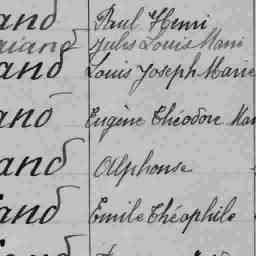 and Paul Henri
aiand Jules Louis Mari
and Louis Joseph Marie
and Eugène Théodore Mar
and Alphonse
and Emile Théophile
and